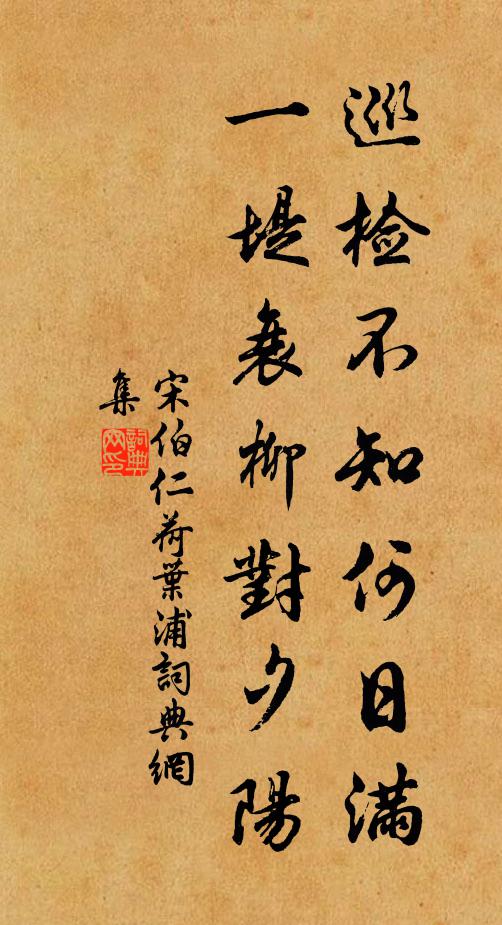 巡檢不知何日滿
一堤衰柳對夕陽
宋伯仁荷葉浦詞典網
集
詞典網印